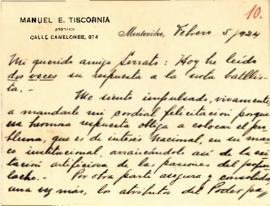 10.
MANUEL E. TISCORNIA
CALLE CANELONES, 974
Montevideo, Febrero 5/924
Mi querido amigo Serrato: Hoy he leido
dos veces su respuesta a la nota batllis-
ta.
Me siento impulsado, vivamente
a mandarle mi cordial felicitación porque
su hermosa respuesta obliga a colocar el pro-
blema, que es de interés nacional, en su mar-
co institucional, arrancándolo así de la
artificiosa de las pasiones del populacho.
Por otra parte asegura y consolida
una vez más, los atributos del Poder